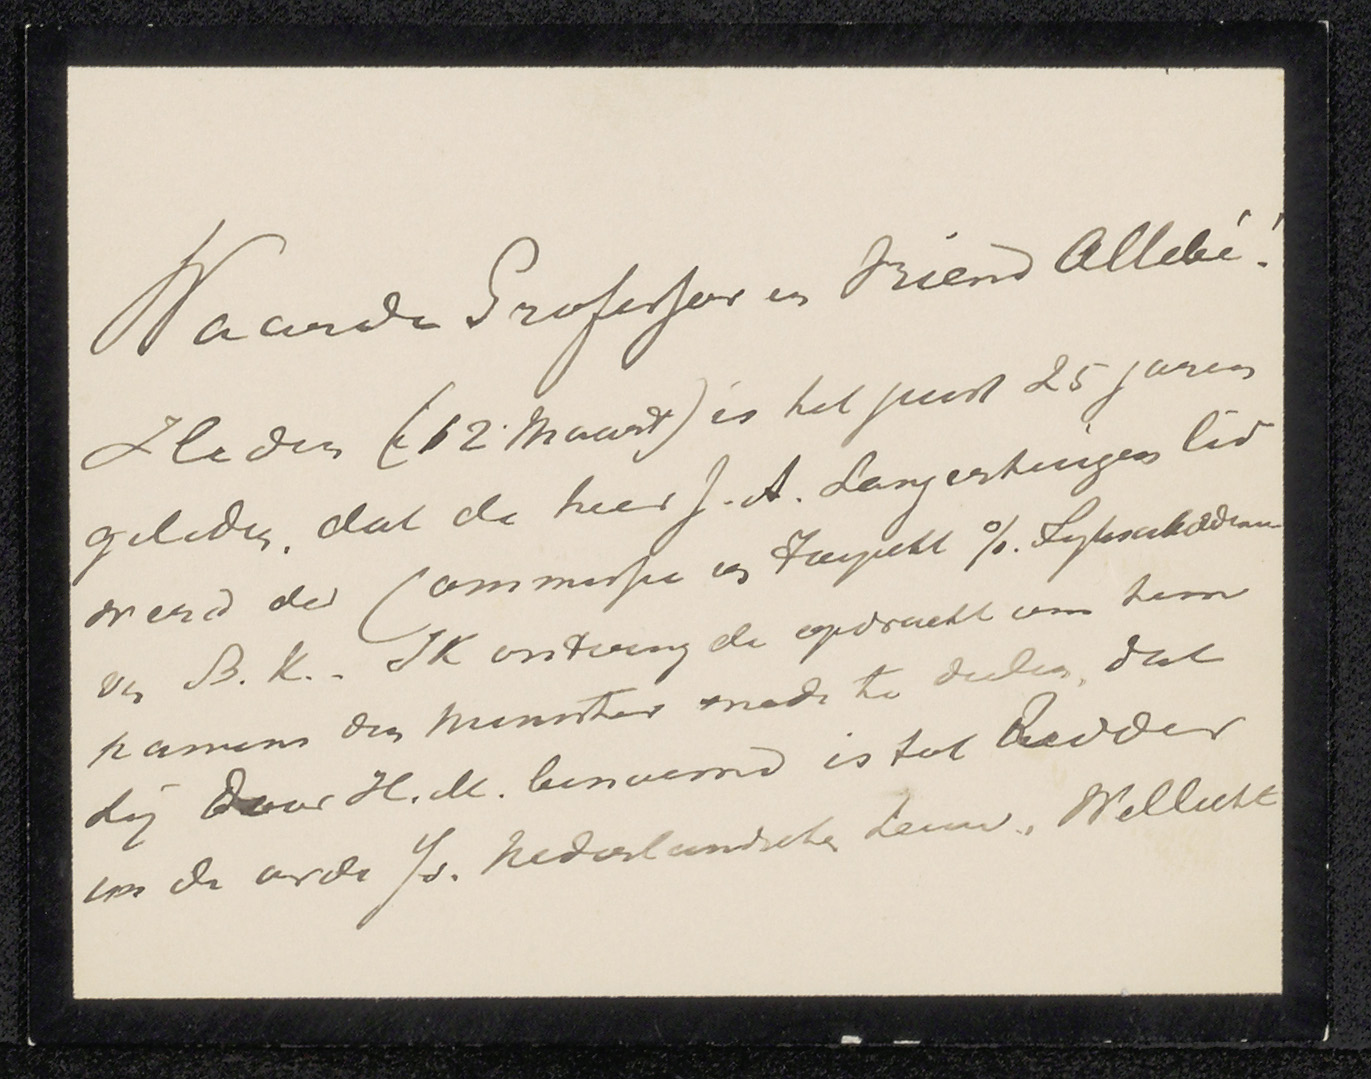 Waarde Professor en Vriend Allebé!
Heden (12 Maart) is het juist 25 jaren
geleden, dat de heer J. A. Langerhuizen lid
werd der Commissie en Toezicht o/. Rijksacademie
van B. K.. Ik ontving de opdracht om hem
namens den Minister mede te deelen, dat
hij door H. M. benoemd is tot Ridder
in de orde v/d. Nederlandsche Leeuw. Wellicht